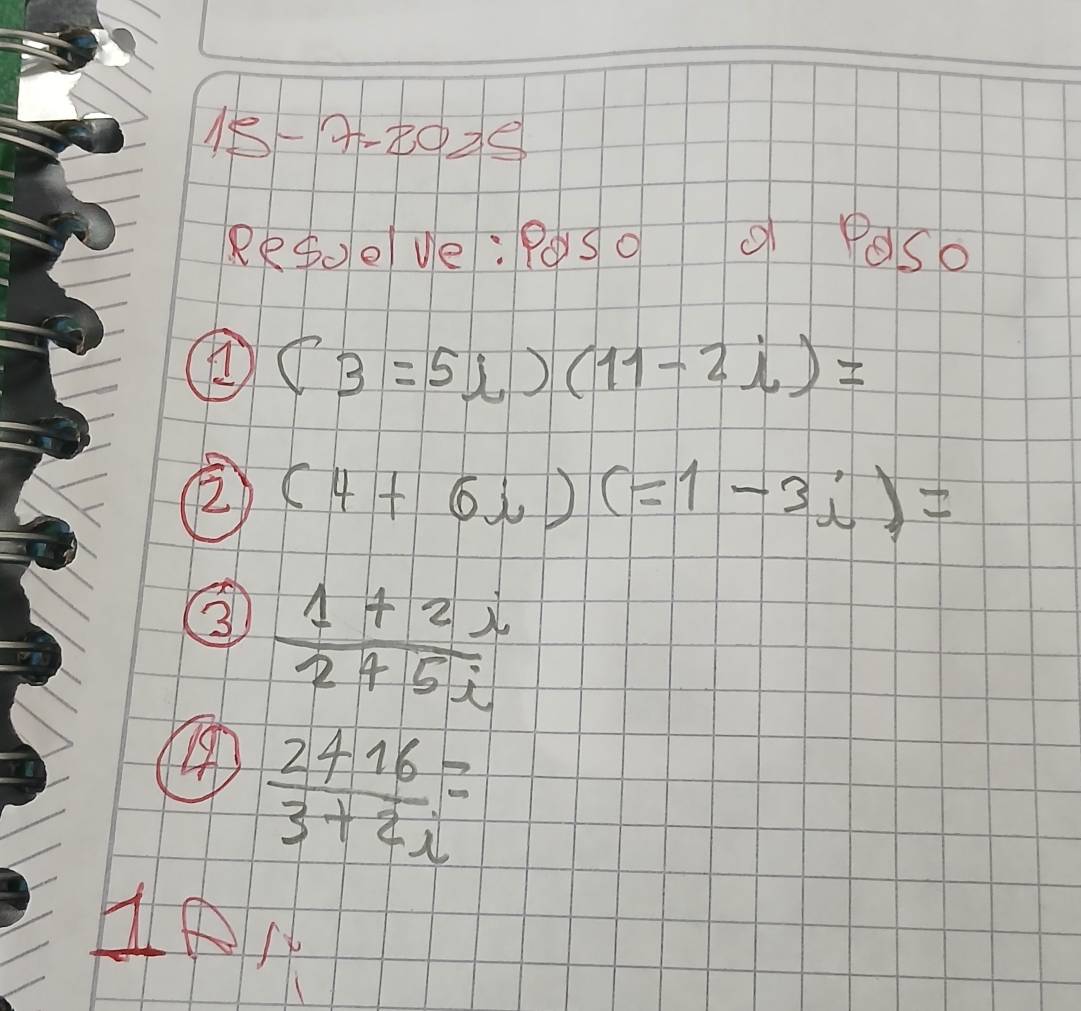 15-7-2025
Resuelve: Paso a Paso
① (3=5i)(11-2i)=
② (4+6i)(=1-3i)=
③ 1+2i
2+5i
④ 2+16=
3+2i
1